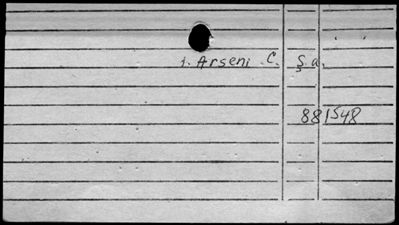 i. Arseni C. Ş.a.
881548